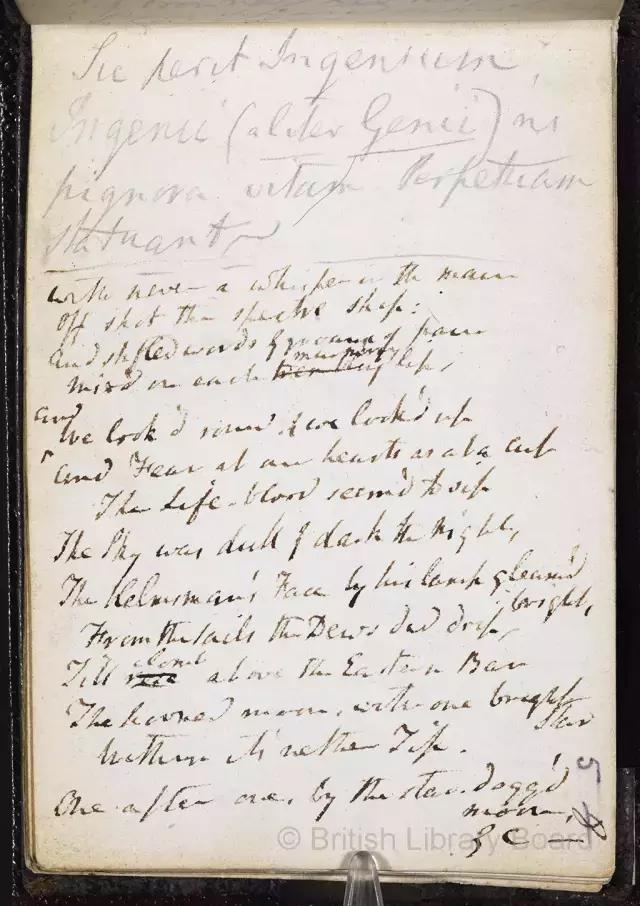 Sic perit Ingenium,
Ingenii (aliter Genii) ni
pignora vitam Perpetuam
statuant
with never a whisper in the main
Off shot the spectre ship:
And stifled words & groans of pain
murmuring
mix'd on each trembling lip,
and
We look'd round & we look'd up
And Fear at our hearts as at a cup
The Life-blood seem'd to sip
The Sky was dull & dark the Night,
The Helmsman's Face by his lamp gleam'd
bright,
From the sails the Dews did drip
Till clomb above the Eastern Bar
The horned moon, with one bright
Star
Within its nether Tip.
One after one, by the star-dogg'd
moon,
&c —
5
© British Library Board